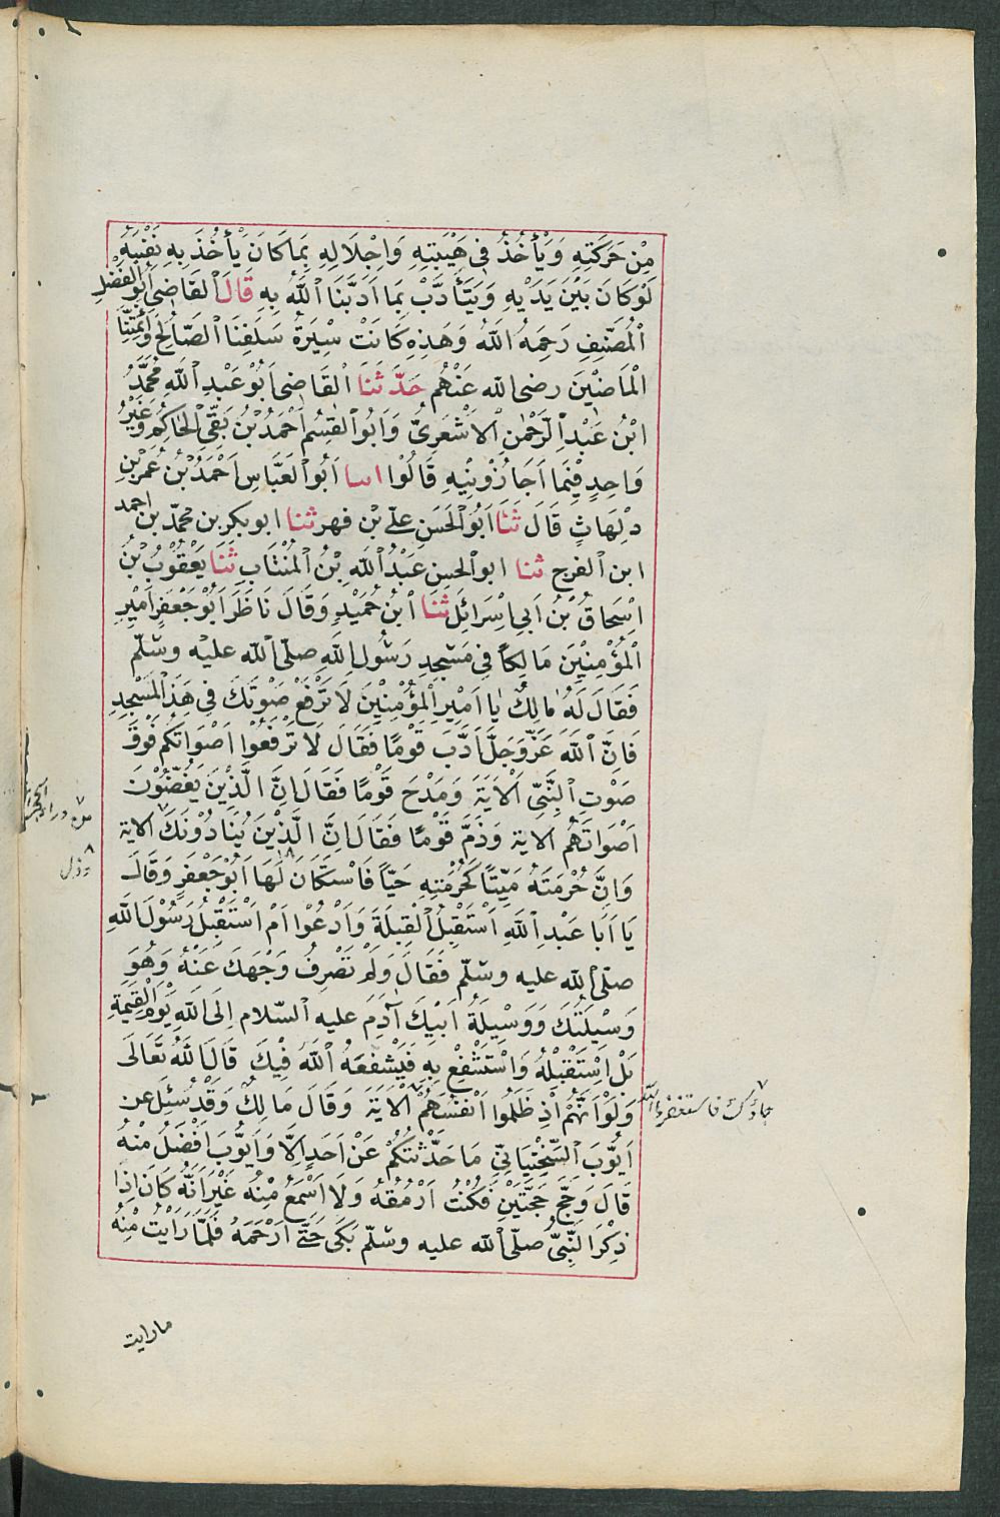 مِنْ حَرَكَتِهِ وَيَأْخُذُ فِي هَيْبَتِهِ وَاِجْلَالِهِ بِمَا كَانَ يَأْخُذُ بِهِ نَفْسَهُ
لَوْ كَانَ بَيْنَ يَدَيْهِ وَيَتَأَدَّبْ بِمَا اَدَّبَنَا اللّٰهُ بِهِ قَالَ القَاضِى اَبُو الفَضْلِ
اْلمُصَنِّفِ رَحِمَهُ اللّٰهُ وَهَذِهِ كَانَتْ سِيْرَةُ سَلَفِنَا الصَّالِحِ وَاَئِمَّتِنَا
الْمَاضِيْنَ رضى الله عَنْهُم حَدَّثَنَا القَاضِى اَبُوْ عَبْدِ اللّٰهِ مُحَمَّدُ
ابْنُ عَبْدِ الرَّحْمٰنِ الْاَشْعَرِىُّ وَاَبُو القٰسِمُ اَحْمَدُ بْنُ بَقِىِّ الْحَاكِمُ وَغَيْرُ
وَاحِدٍ فِيْمَا اَجَازُوْنِيْهِ قَالُوْا انبا اَبُو العَبَّاسِ اَحْمَدُ بْنُ عُمَرَ بْنِ
دِلْهَاثِ قَالَ ثَنَا اَبُو الْحَسَنِ عَلَى بْنِ فهر ثنا ابو بكر بن محمّد بن احمد
ابن الفرج ثنا ابو الحسن عَبْدُ اللّٰهِ بْنُ المُنْتَابِ ثَنَا يَعْقُوْبُ بْنُ
اِسْحَاقَ بْنُ اَبِى اِسْرَائِلَ ثَنَا ابْنُ حُمَيْدٍ وَقَالَ نَاظَرَ اَبُوْ جَعْفَرٍ اَمِيْرِ
المُؤْمِنِيْنَ مَالِكًا فِى مَسْجِدِ رَسُولِ اللّٰهِ صلّى الله عليه وسلّم
فَقَالَ لَهُ مَالِكُ يَا اَمِيْرِ الْمُؤْمِنِيْنَ لَا تَرْفَعْ صَوْتَكَ فِى هَذَا الْمَسْجِدِ
فَاِنَّ اللّٰهَ عَزَّ وَجَلَّ اَدَّبَ قَوْمًا فَقَالَ لَا تَرْفَعُوْا اَصْوَاتَكُمْ فَوْقَ
صَوْتِ النَّبِىِّ الْاٰيَةَ وَمَدَحَ قَوْمًا فَقَالَ اِنَّ الَّذِيْنَ يَغُضُّوْنَ
اَصْوَاتَهُم الاية وَذَمَّ قَوْمًا فَقَالَ اِنَّ الَّذِيْنَ يُنَادُوْنَكَ الاية
وَاِنَّ حُرْمَتَهُ مَيِّتًا كَحُرْمَتِهِ حَيًّا فَاسْتَكَانَ لَهَا اَبُوْ جَعْفَرٍ وَقَالَ
يَا اَبَا عَبْدِ اللّٰهِ اَسْتَقْبِلُ الْقِبْلَةَ وَاَدْعُوْا اَمْ اَسْتَقْبِلُ رَسُوْلَ اللّٰهِ
صلّى الله عليه وسلّم فَقَالَ وَلِمَ تَصْرِفُ وَجْهَكَ عَنْهُ وَهُوَ
وَسِيْلَتُكَ وَوَسِيلَةُ اَبِيْكَ آدَمَ عليه السّلام اِلَى اللّٰهِ يَوْمَ الْقِيٰمَةِ
بَلْ اِسْتَقْبِلْهُ وَاسْتَشْفِعْ بِهِ فَيُشَفِّعَهُ اللّٰهُ فِيْكَ قَالَ اللّٰهُ تَعَالَى
وَلَوْ اَنَّهُمْ اِذْ ظَلَمُوا اَنْفُسَهُمْ الْاٰيَةَ وَقَالَ مَالِكُ وَقَدْ سُئِلَ عَن
اَيُّوْبَ السَّخْتِيَانِىِّ مَا حَدَّثْتُكُمْ عَنْ اَحَدٍ اِلَّا وَاَيُّوْبَ اَفْضَلُ مِنْهُ
قَالَ وَحَجَّ حَجَّتَيْنِ فَكُنْتُ اَرْمُقُهُ وَلَا اَسْمَعُ مِنْهُ غَيْرَ اَنَّهُ كَانَ اِذَا
ذُكِرَ النَّبِىُّ صلّى الله عليه وسلّم بَكَى حَتَّى اَرْحَمَهُ فَلَمَّا رَاَيْتُ مِنْهُ
جاؤك فاستغفروا الله
من وراء الحجرات
مارايت